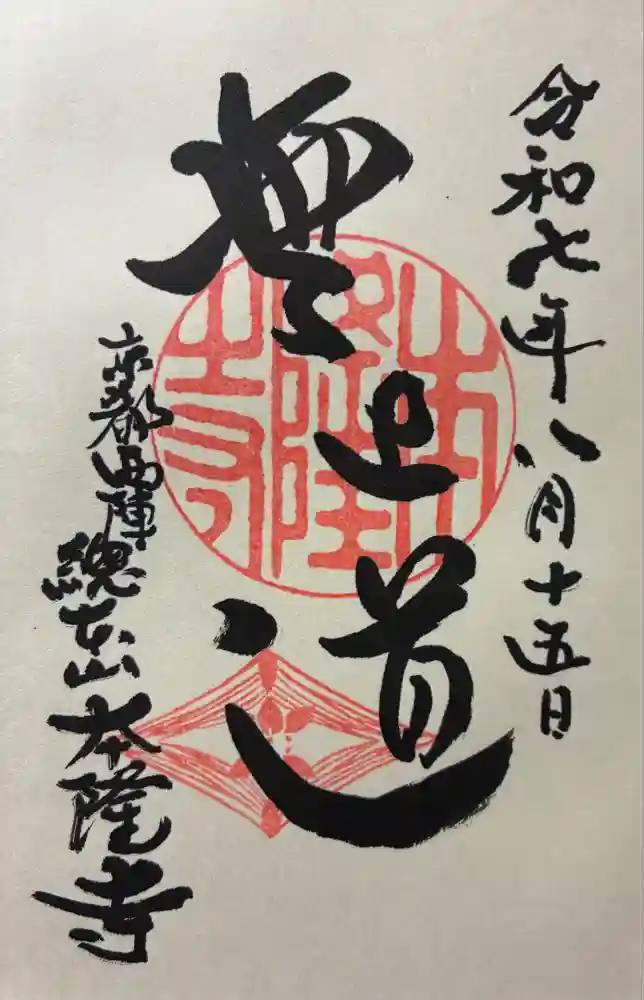 令和七年八月十五日
無上道
本隆寺
京都西陣
総本山本隆寺